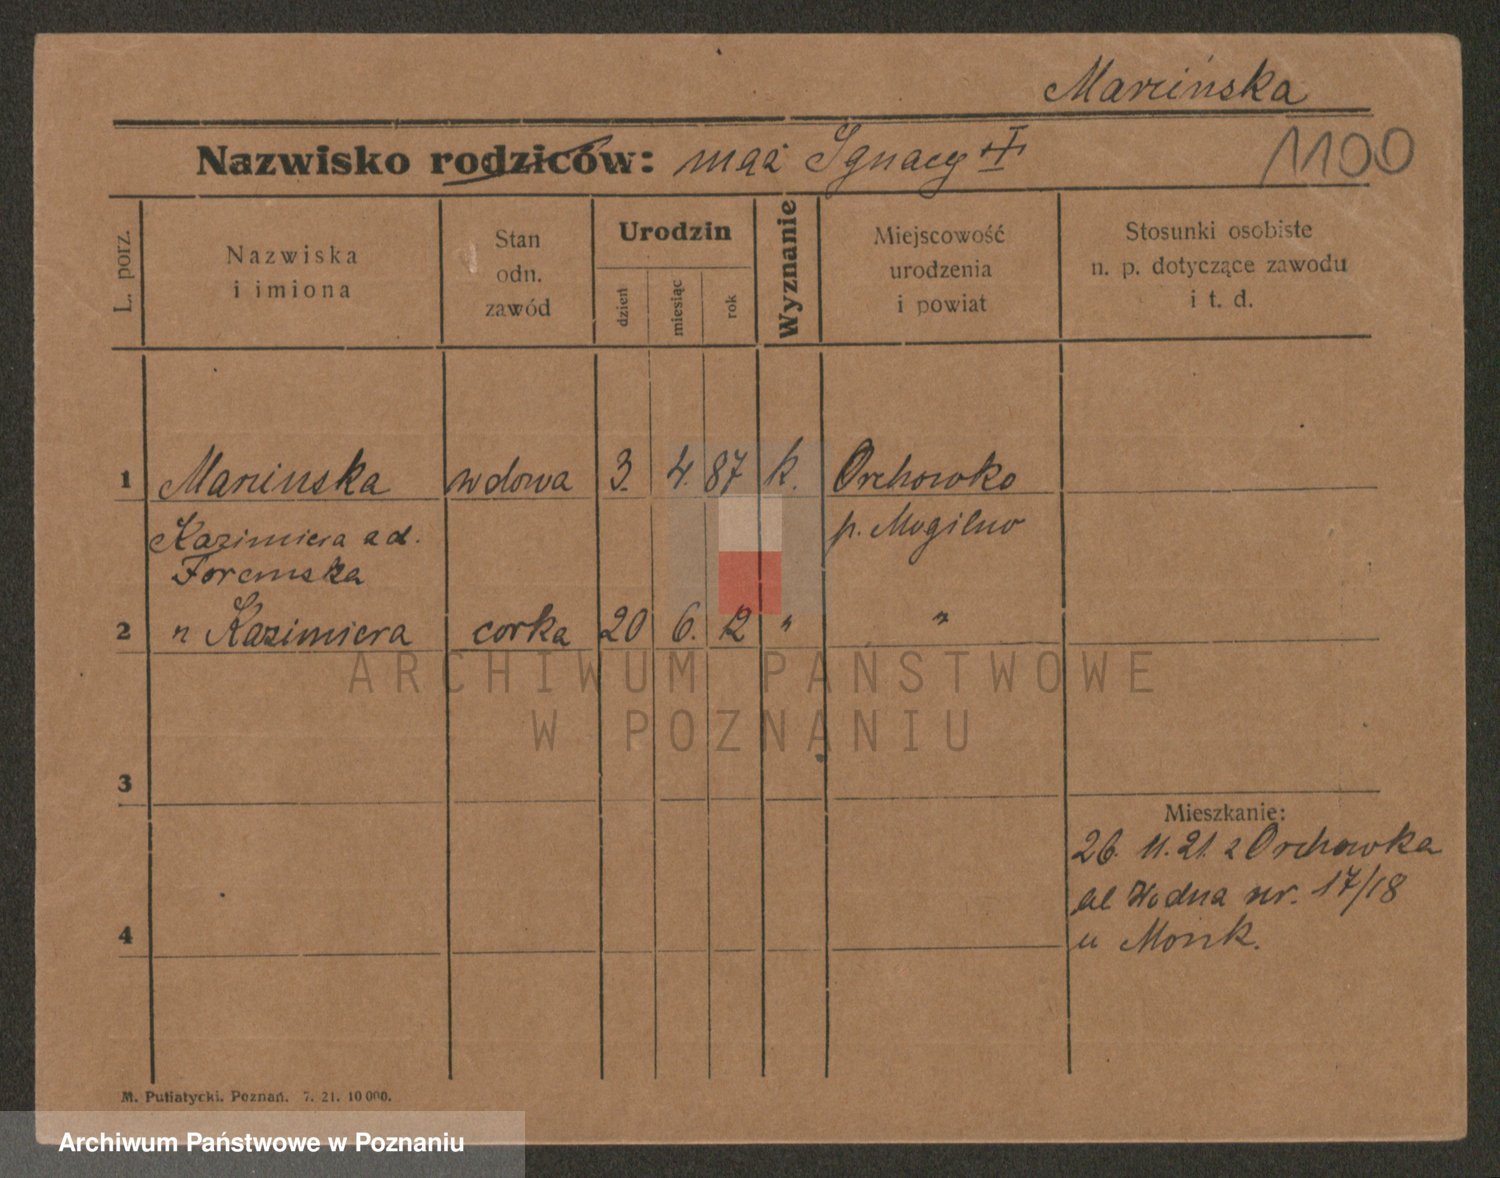 Marcińska
Nazwisko rodziców: mąż Ignacy
1100
L. porz.
Nazwiska
i imiona
Stan
odn.
zawód
Urodzin
dzień
miesiąc
rok
Wyznanie
Miejscowość
urodzenia
i powiat
Stosunki osobiste
n. p. dotyczące zawodu
i t. d.
1 Marcinska wdowa 3. 4. 87 k. Orchowko
Kazimiera p. Mogilno
Foremska
2 " Kazimiera corka 20 6. 12 " "
3
Mieszkanie:
26. 11. 21. z Orchowka
Wodna nr. 17/18
4
u
M. Putiatycki. Poznań. 7. 21. 10 000.
ARCHIWUM PAŃSTWOWE
W POZNANIU
Archiwum Państwowe w Poznaniu